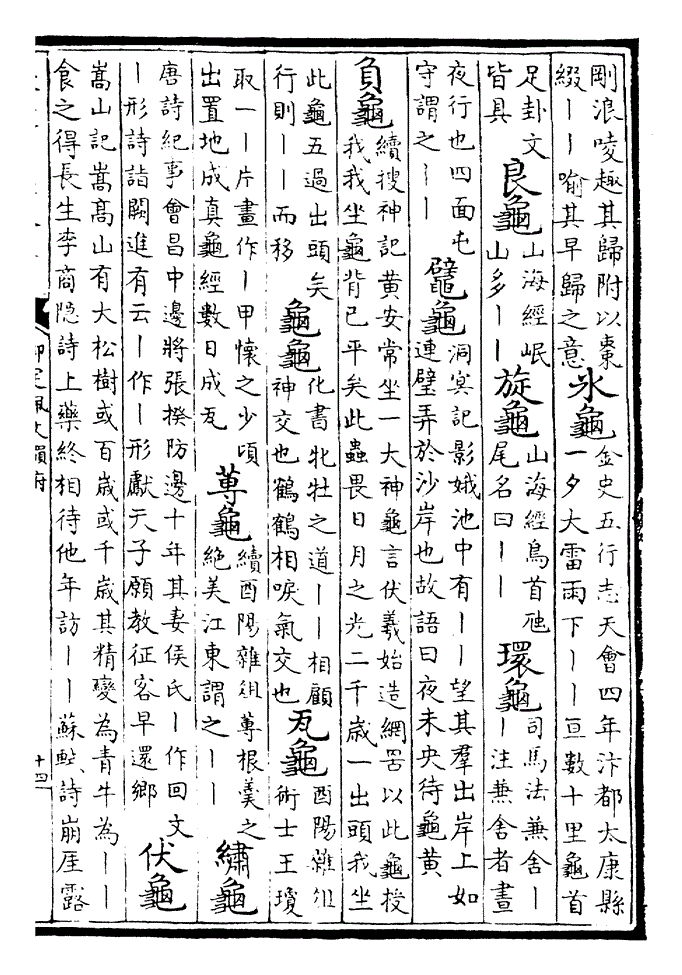 剛浪唛趣其歸附以棗
綴丨丨喻其早歸之意
氷龜
金史五行志天會四年汴都太康縣
一夕大雷雨下丨丨亘數十里龜首
足卦文
皆具
良龜
山海經岷
山多丨丨
旋龜
山海經鳥首虺
尾名曰丨丨
環龜
司馬法兼舍丨
丨注兼舍者晝
夜行也四面屯
守謂之丨丨
鼊龜
洞冥記影娥池中有丨丨望其羣出岸上如
連璧弄於沙岸也故語曰夜未央待龜黃
負龜
續搜神記黃安常坐一大神龜言伏羲始造網罟以此龜授
我我坐龜背已平矣此蟲畏日月之光二千歳一出頭我坐
此龜五過出頭矣
行則丨丨而移
龜龜
化書牝牡之道丨丨相顧
神交也鶴鶴相唳氣交也
瓦龜
酉陽雜俎
術士王瓊
取一丨片畫作丨甲懷之少頃
出置地成真龜經數日成瓦
蓴龜
續酉陽雜俎蓴根羹之
絶美江東謂之丨丨
繡龜
唐詩紀事會昌中邊將張揆防邊十年其妻侯氏丨作回文
丨形詩詣闕進有云丨作丨形獻天子願教征客早還鄉
伏龜
嵩山記嵩髙山有大松樹或百歳或千歳其精變為青牛為丨丨
食之得長生李商隐詩上藥終相待他年訪丨丨蘇軾詩崩厓露
御定佩文韻府
十四